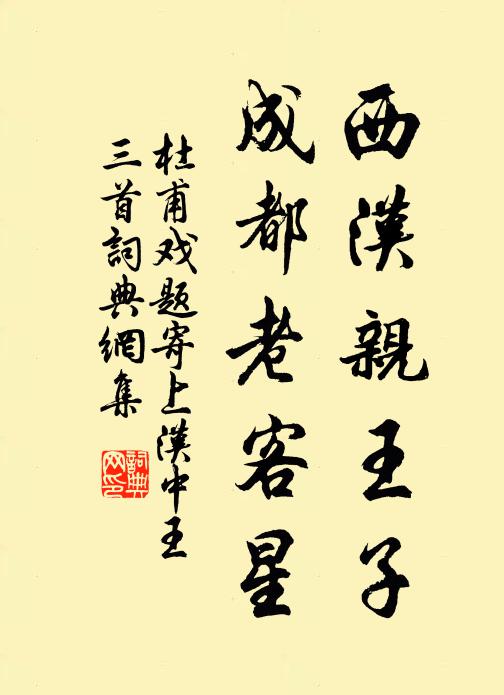 西漢親王子
成都老客星
杜甫戏题寄上漢中王
三首詞典網集
詞典
网印